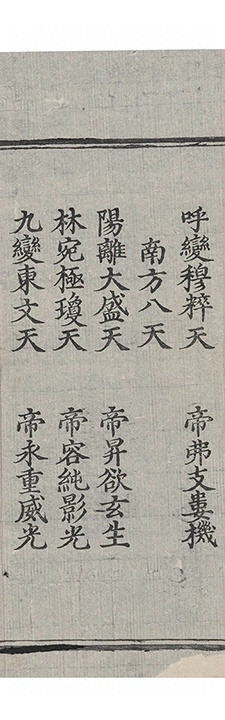 呼變穆粹天　帝弗支婁機
南方八天
陽離大盛天　帝昇欲玄生
林宛極瓊天　帝容純影光
九變東文天　帝永重威光